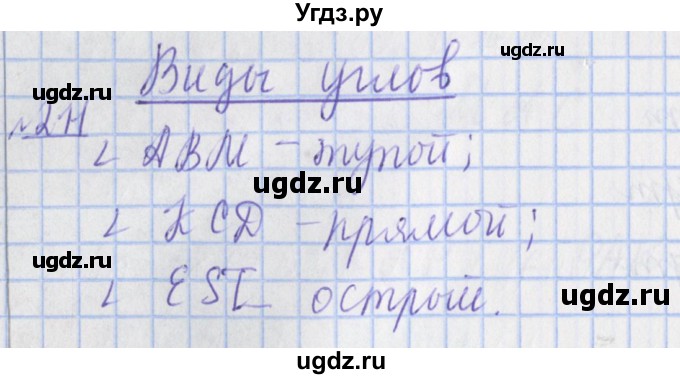 Угдз.ру
Виды углов
ugdz.ru ugdz.ru
№211
∠ ABM - тупой;
ugdz.ru
∠ KCD - прямой;
ugdz.ru
∠ EST - острый.
ugdz.ru
ugdz.ru